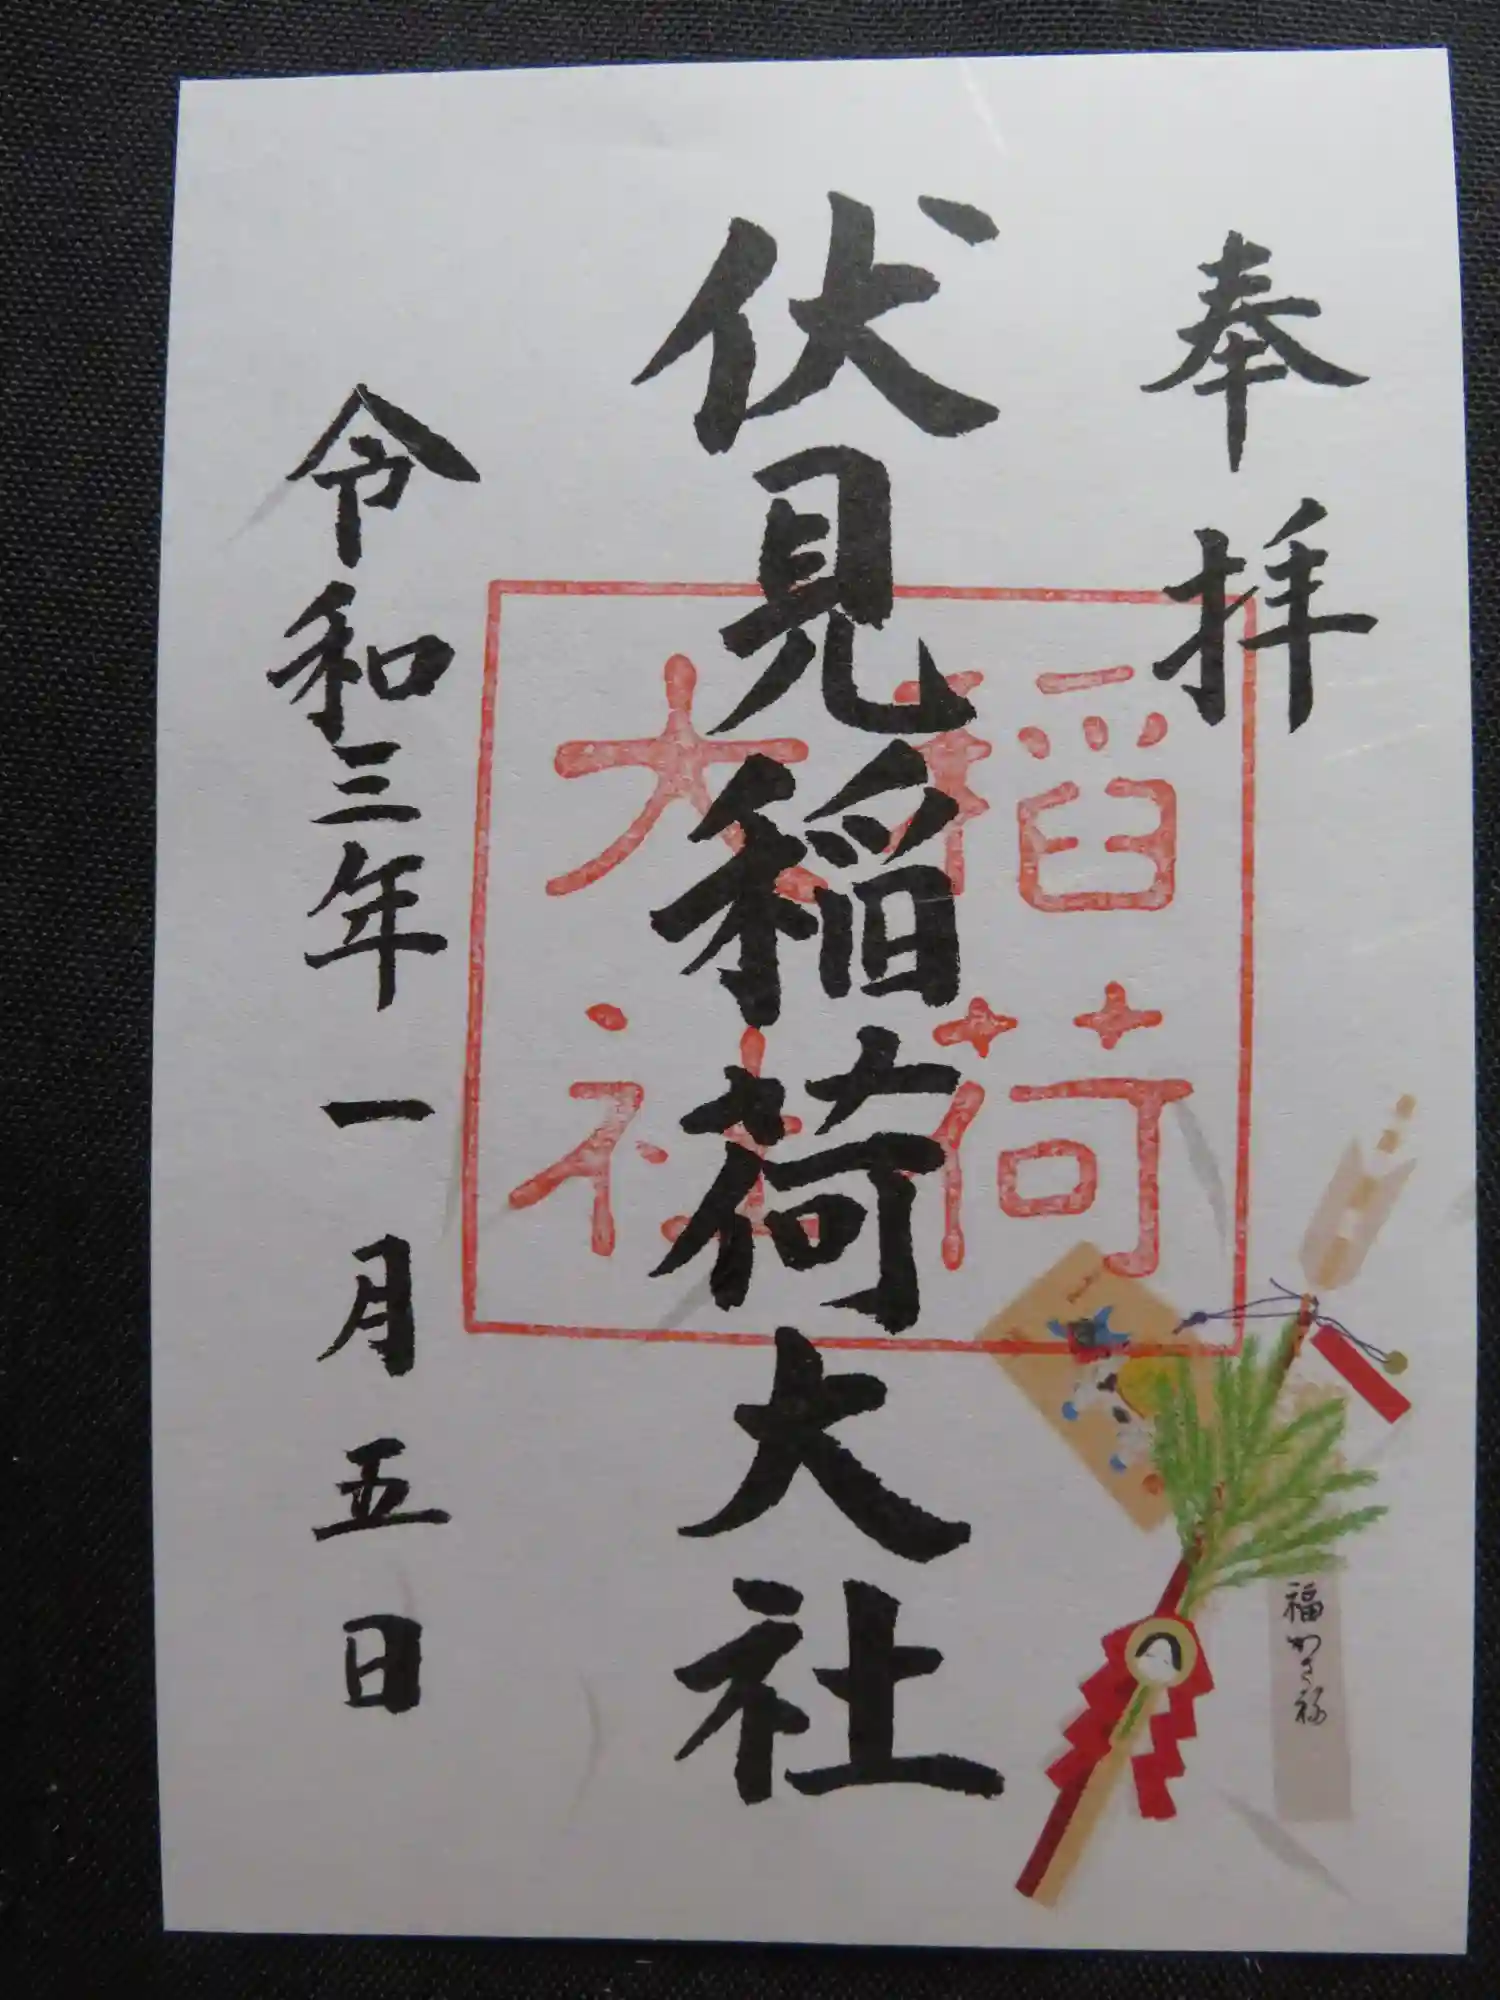 奉拝
伏見稲荷大社
令和三年一月五日
稲荷
大社
福かさね